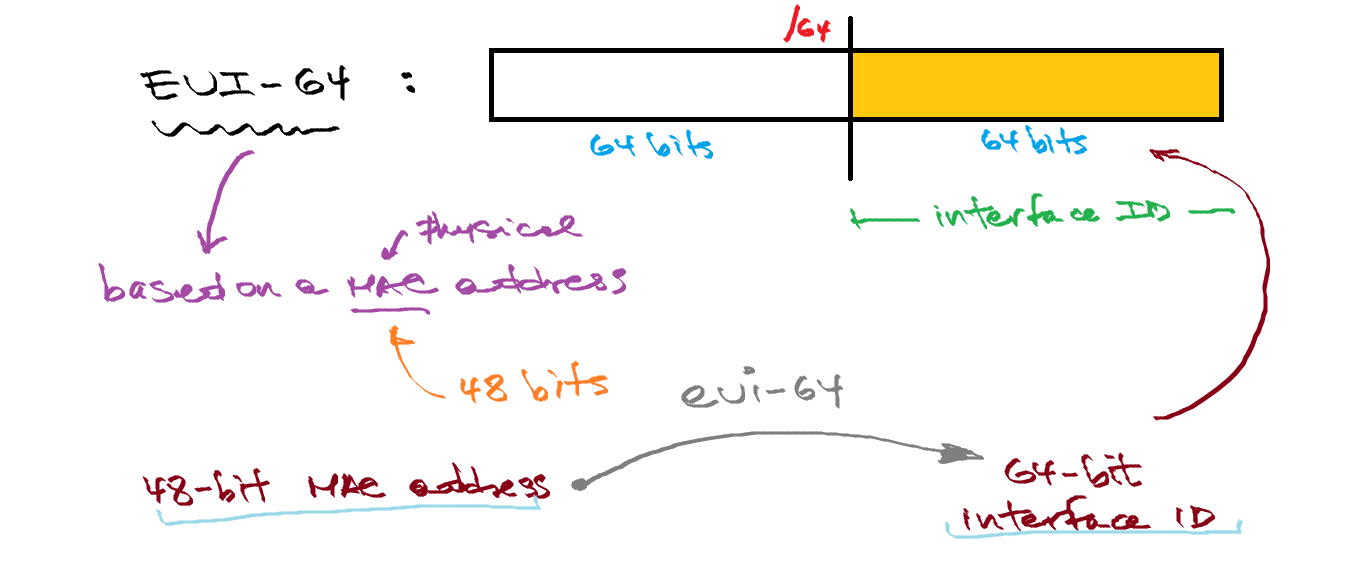 /64
EUI-64 :
64 bits
64 bits
interface ID
Physical
based on a MAC address
48 bits
eui-64
48-bit MAC address
64-bit
interface ID